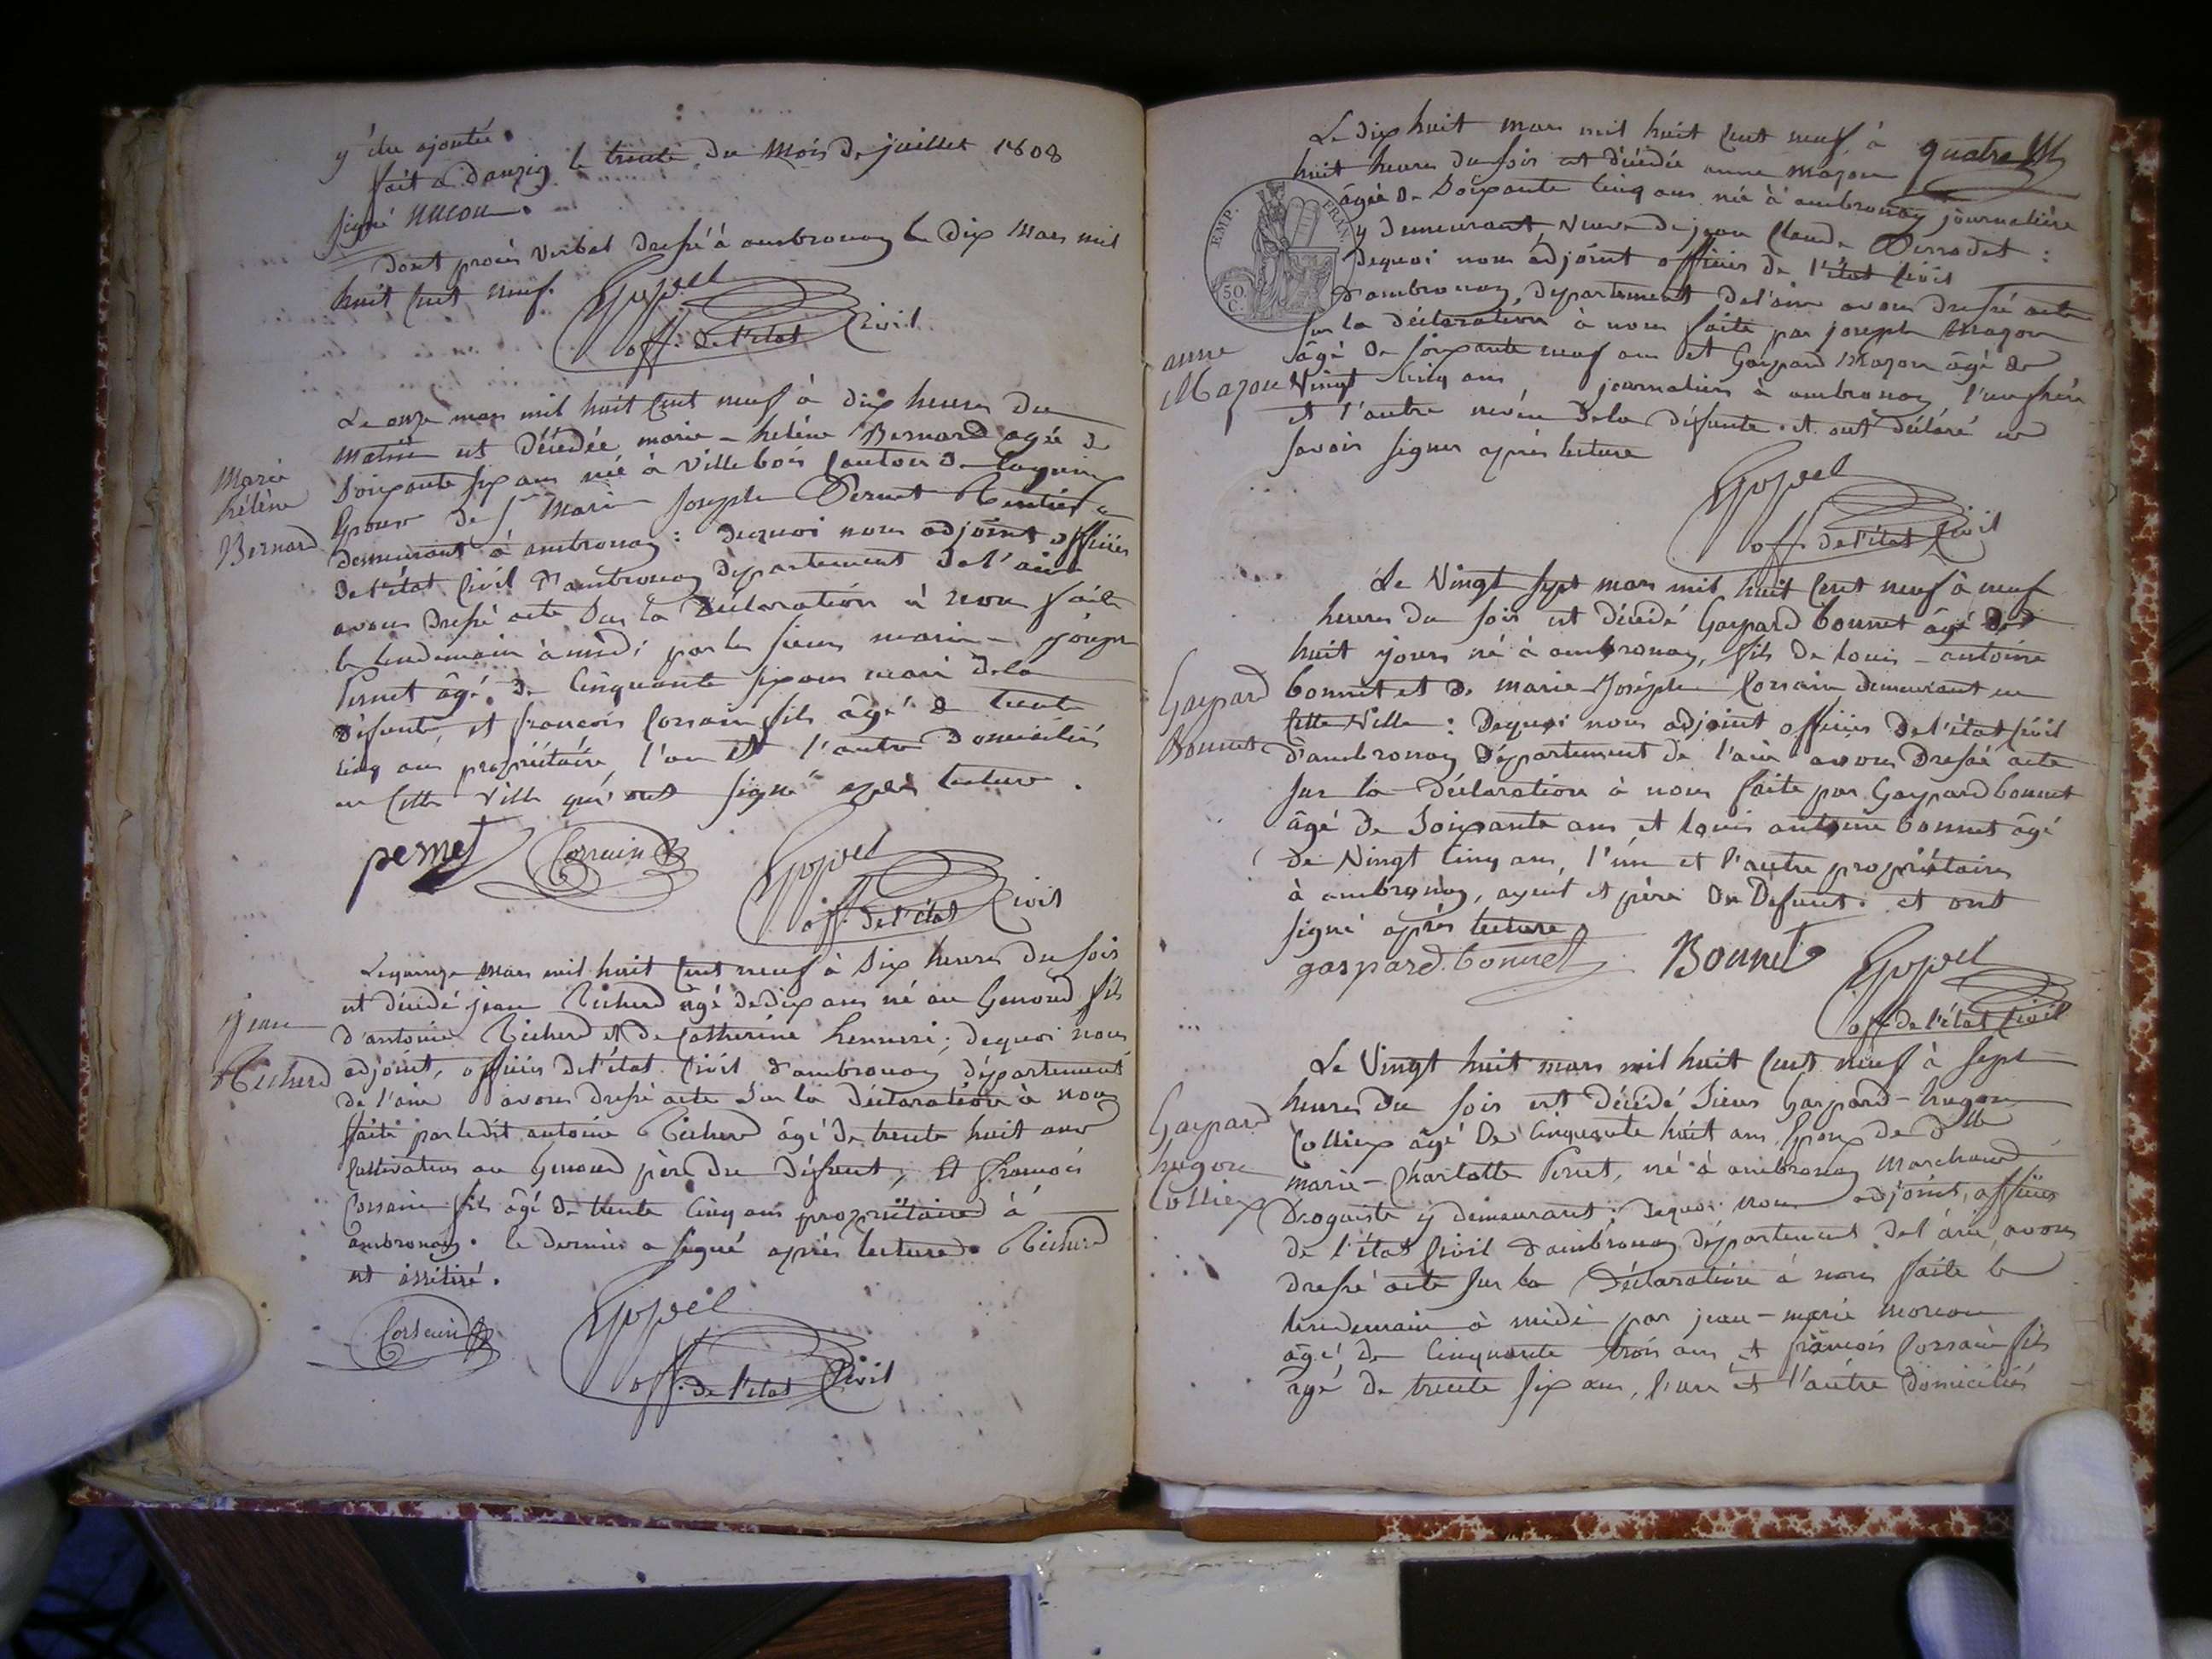 y être ajoutée.
fait à danzig le trente du mois de juillet 1808
signé
Dont procès verbal dressé à ambronay le dix mars mil
huit cent neuf.
off. de l'état Civil
Le onze mars mil huit cent neuf à dix heures du
matin est décédée marie-helène Bernard agée de
Soixante six ans née à Villebois Canton de lagnieu
Marie
hélène
Bernard
Epouse de Sr Marie Joseph Pernet Rentier
demeurant à ambronay : dequoi nous adjoint officier
de l'état Civil d'ambronay département de l'ain
avons dressé acte sur la déclaration à nous faite
le lendemain à midi par les sieurs marie-joseph
Pernet âgé de Cinquante six ans mari de la
défunte et francois Corsain fils âgé de trente
cinq ans propriétaire l'un et l'autre domiciliés
en Cette Ville qui ont signé après lecture.
pernet Corsain
off. de l'état Civil
Le quinze mars mil huit cent neuf à six heures du soir
est décédé jean Richerd âgé de dix ans né au Genoud fils
jean
Richerd
d'antoine Richerd et de Catherine ; dequoi nous
adjoint, officier de l'état Civil d'ambronay département
de l'ain avons dressé acte Sur la déclaration à nous
faite par ledit antoine Richerd âgé de trente huit ans
Cultivateur au Genoud père du défunt, Et francois
Corsain fils âgé de trente Cinq ans propriétaire à
ambronay. le dernier a signé après lecture. Richerd
est illitéré.
Corsain
off. de l'état Civil
Le dix huit mars mil huit Cent neuf à quatre
huit heures du soir est décédée anne mazon
âgée de Soixante Cinq ans née à ambronay journalière
y demeurant Veuve de jean Claude :
dequoi nous adjoint officier de l'état Civil
EMP. FRAN.
50 C.
d'ambronay, departement de l'ain avons dressé acte
sur la déclaration à nous faite par joseph mazon
âgé de soixante neuf ans et Gaspard Mazon âgé de
anne
Mazon
Vingt Cinq ans journaliers à ambronay l'un frère
et l'autre neveu de la défunte. et ont déclaré ne
savoir signer après lecture
off. de l'état Civil
Le Vingt sept mars mil huit Cent neuf à neuf
heures du soir est décédé Gaspard bonnet âgé de
huit jours né à ambronay, fils de louis-antoine
Gaspard
Bonnet
bonnet et de marie Joséphe Corsain demeurant en
Cette Ville : Dequoi nous adjoint officier de l'état Civil
d'ambronay Département de l'ain avons dressé acte
sur la déclaration à nous faite par Gaspard bonnet
âgé de Soixante ans et louis antoine bonnet âgé
de Vingt Cinq ans, l'un et l'autre propriétaires
à ambronay, ayeul et père du Defunt. et ont
signé après lecture
gaspard. bonnet Bonnet
off. de l'état Civil
Le Vingt huit mars mil huit Cent neuf à sept
heures du soir est décédé Sieur Gaspard-hugon
Gaspard
hugon
Colliex
Colliex âgé De Cinquante huit ans Epoux de dlle
marie-Charlotte Pernet, né à ambronay Marchand
Droguiste y demeurant ; Dequoi nous adjoint, officier
de l'état Civil d'ambronay département de l'ain, avons
dressé acte sur la Déclaration à nous faite le
lendemain à midi par jean-marie moreau
âgé de Cinquante trois ans et françois Corsain fils
âgé de trente six ans, l'un et l'autre domiciliés